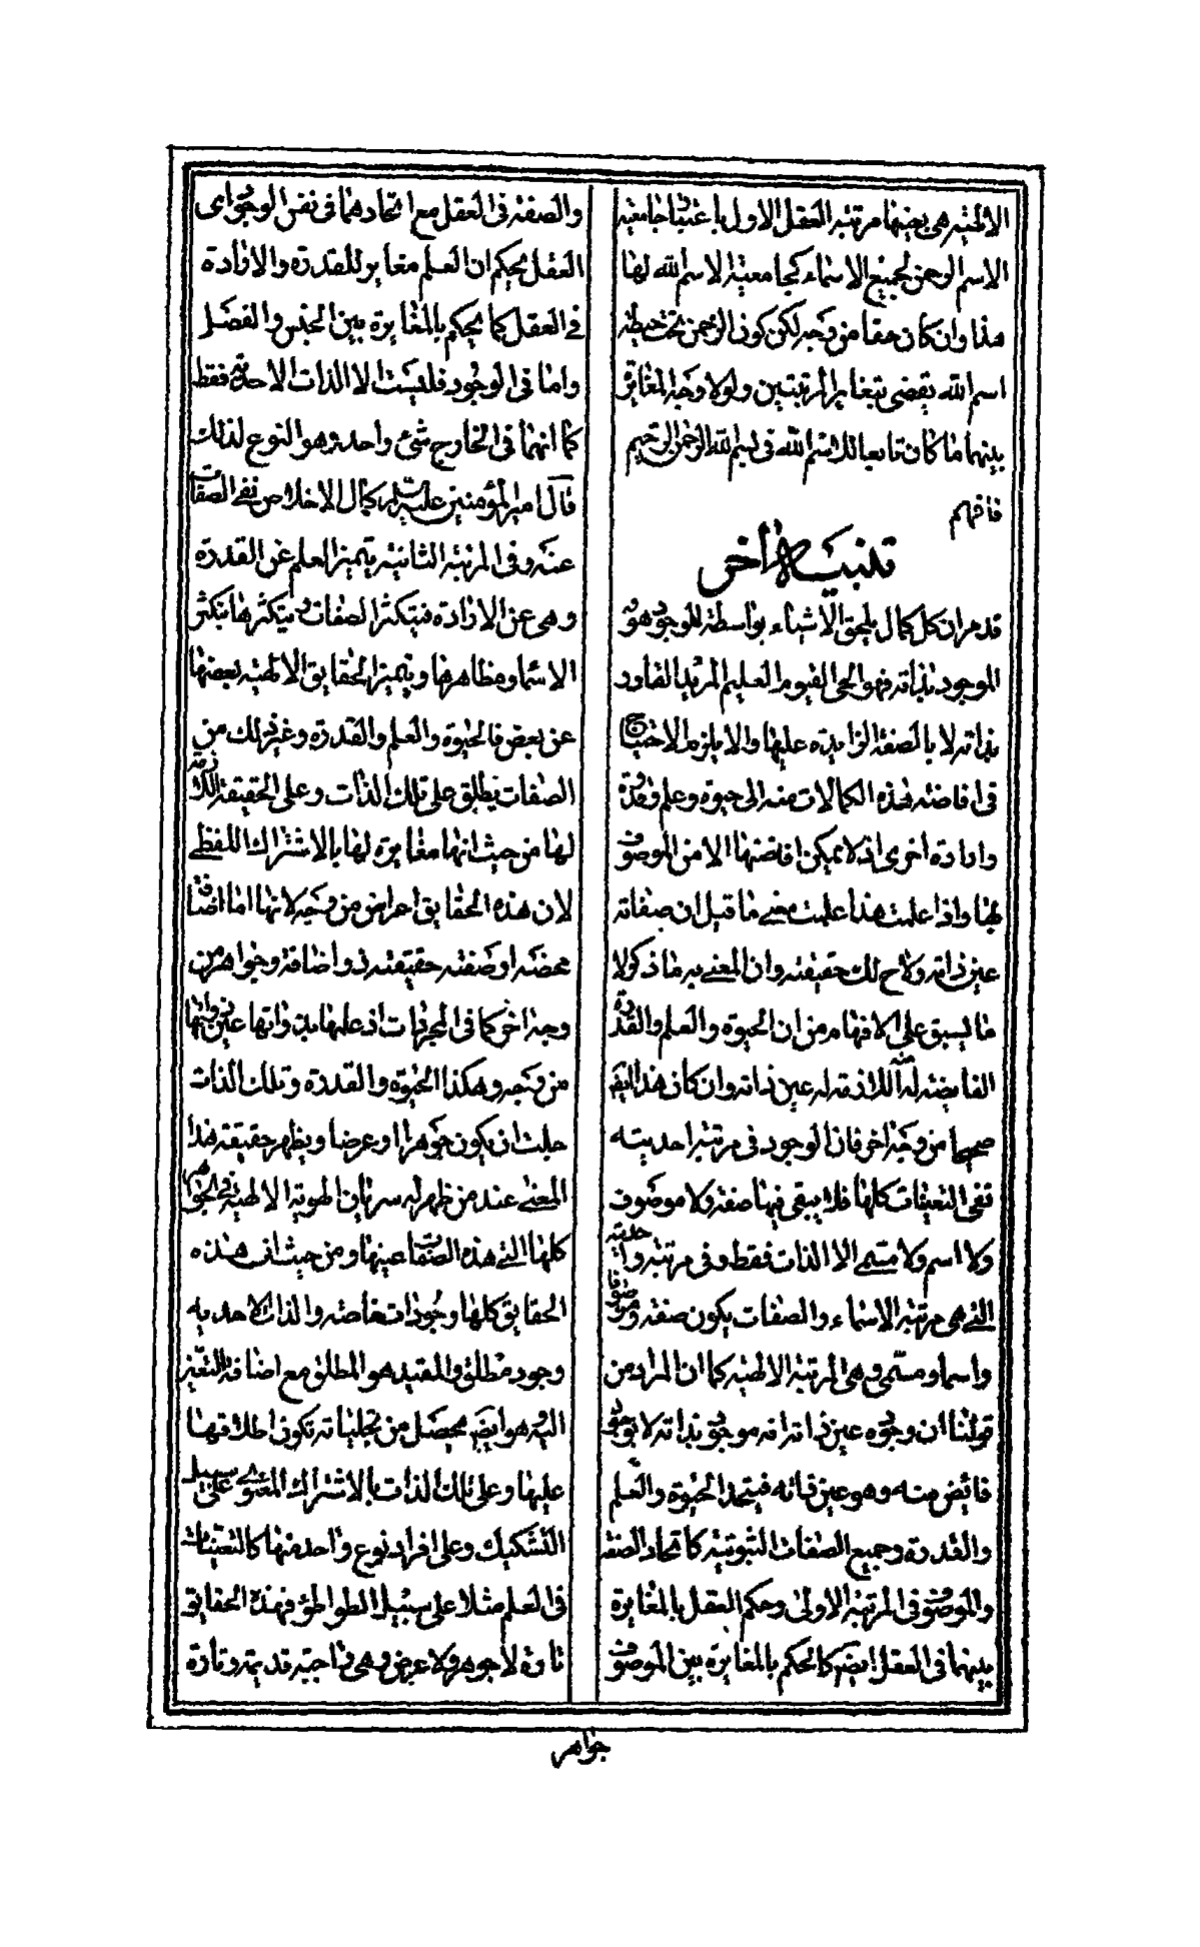 الالهية هى بعينها مرتبة العقل الاول باعتبار جامعية
الاسم الرحمن لجميع الاسماء كجامعية الاسم الله لها
هذا وان كان حقا من وجه لكن كون الرحمن تحت حيطة
اسم الله يقضى بتغاير المرتبتين ولولا وجه المغايرة
بينهما ما كان تابعا لاسم الله فى بسم الله الرحمن الرحيم
فافهم
تنبيه اخر
قد مر ان كل كمال يلحق الاشياء بواسطة الوجود هو
الموجود بذاته فهو الحى القيوم العليم المريد القادر
بذاته لا بالصفة الزايدة عليها والا يلزم الاحتياج
فى افاضة هذه الكمالات منه الى حيوة وعلم وقدرة
وارادة اخرى اذ لا يمكن افاضتها الا من الموصوف
بها واذا علمت هذا علمت معنى ما قيل ان صفاته
عين ذاته ولاح لك حقيقته وان المعنى به ما ذكر لا
ما يسبق على الافهام من ان الحيوة والعلم والقدرة
الفايضة منه اللازمة له عين ذاته وان كان هذا ايضا
صحيحا من وجه اخر فان الوجود فى مرتبة احديته
تنفى التعينات كلها فلا يبقى فيها صفة ولا موصوف
ولا اسم ولا مسمى الا الذات فقط وفى مرتبة واحديته
التى هى مرتبة الاسماء والصفات يكون صفة وموصوفا
واسما ومسمى وهى المرتبة الالهية كما ان المراد من
قولنا ان وجوده عين ذاته انه موجود بذاته لا بوجود
فائض منه وهو عين ذاته فيتحد الحيوة والعلم
والقدرة وجميع الصفات الثبوتية كاتحاد الصفة
والموصوف فى المرتبة الاولى وحكم العقل بالمغايرة
بينهما فى العقل ايضا كالحكم بالمغايرة بين الموصوف
والصفة فى العقل مع اتحادهما فى نفس الوجود اى
العقل يحكم ان العلم مغاير للقدرة والارادة
فى العقل كما يحكم بالمغايرة بين الجنس والفصل
واما فى الوجود فليست الا الذات الاحدية فقط
كما انهما فى الخارج شئ واحد وهو النوع لذلك
قال امير المؤمنين عليه السلام كمال الاخلاص نفى الصفات
عنه وفى المرتبة الثانية يتميز العلم عن القدرة
وهى عن الارادة فيتكثر الصفات وبتكثرها يتكثر
الاسماء ومظاهرها ويتميز الحقايق الالهية بعضها
عن بعض فالحيوة والعلم والقدرة وغير ذلك من
الصفات يطلق على تلك الذات وعلى الحقيقة اللازمة
لها من حيث انها مغايرة لها بالاشتراك اللفظى
لان هذه الحقايق اعراض من وجه لانها اما اضافة
محضة او صفة حقيقية ذو اضافة وجواهر من
وجه اخر كما فى المجردات اذ علمها بذواتها عين ذواتها
من وجه وهكذا الحيوة والقدرة وتلك الذات
جلت ان يكون جوهرا او عرضا ويظهر حقيقة هذا
المعنى عند من ظهر له سريان الهوية الالهية فى الجواهر
كلها التى هذه الصفات عينها ومن حيث ان هذه
الحقايق كلها وجودات خاصة والذات الاحدية
وجود مطلق والمقيد هو المطلق مع اضافة التعين
اليه وهو ايضا يحصل من تجلياته تكون اطلاقها
عليها وعلى تلك الذات بالاشتراك المعنوى على سبيل
التشكيك وعلى افراد نوع واحد منها كالتعينات
فى العلم مثلا على سبيل التواطؤ فهذه الحقايق
تارة لا جوهر ولا عرض وهى واجبة قديمة وتارة
جواهر